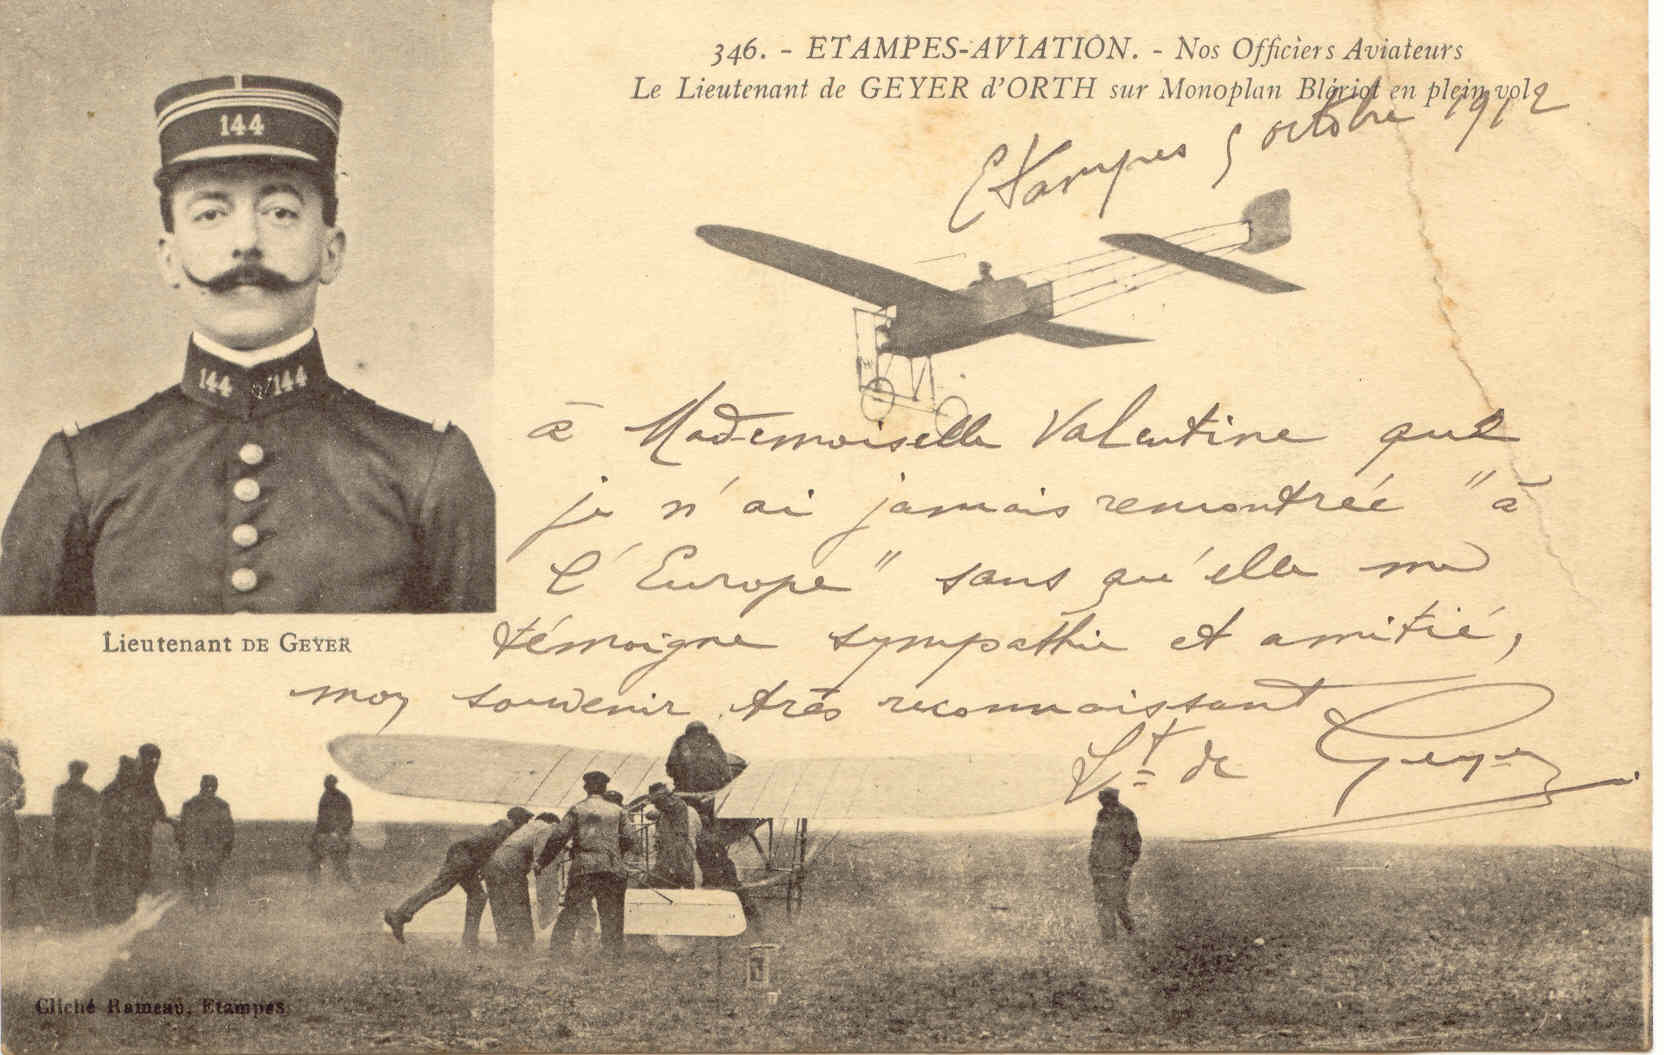 346. - ETAMPES-AVIATION. - Nos Officiers Aviateurs
Le Lieutenant de GEYER d'ORTH sur Monoplan Blériot en plein vol
Etampes 5 octobre 1912
144
144 144
à Mademoiselle Valentine que
je n'ai jamais rencontrée "à
l'Europe" sans qu'elle me
témoigne sympathie et amitié,
Lieutenant DE GEYER
mon souvenir très reconnaissant
Lt de Geyer
Cliché Rameau, Etampes